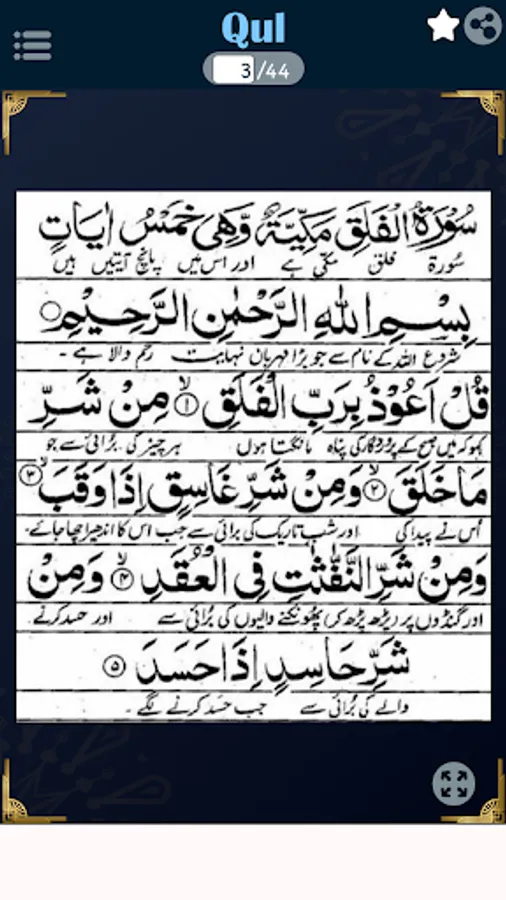 Qul
3/44
سُوْرَةُ الْفَلَقِ مَكِّيَّةٌ وَّهِىَ خَمْسُ اٰيَاتٍ
سُورة فلق مکی ہے اور اس میں پانچ آیتیں ہیں
بِسْمِ اللّٰهِ الرَّحْمٰنِ الرَّحِيْمِ ○
شروع اللہ کے نام سے جو بڑا مہربان نہایت رحم والا ہے۔
قُلْ اَعُوْذُ بِرَبِّ الْفَلَقِ ۙ﴿۱﴾ مِنْ شَرِّ
کہو کہ میں صبح کے پروردگار کی پناہ مانگتا ہوں ہر چیز کی برائی سے جو
مَا خَلَقَ ۙ﴿۲﴾ وَمِنْ شَرِّ غَاسِقٍ اِذَا وَقَبَ ۙ﴿۳﴾
اُس نے پیدا کی اور شب تاریک کی برائی سے جب اس کا اندھیرا چھا جائے۔
وَمِنْ شَرِّ النَّفّٰثٰتِ فِى الْعُقَدِ ۙ﴿۴﴾ وَمِنْ
اور گنڈوں پر پڑھ پڑھ کر پھونکنے والیوں کی بُرائی سے اور حسد کرنے
شَرِّ حَاسِدٍ اِذَا حَسَدَ ﴿۵﴾
والے کی بُرائی سے جب حسد کرنے لگے۔